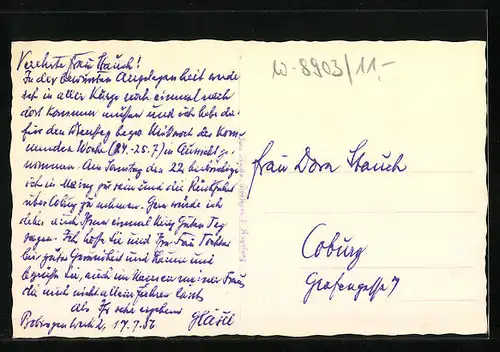 Verehrte Frau Stauch!
In der bewussten Angelegenheit werde
ich in aller Kürze noch einmal nach
dort kommen müssen und ich habe da-
für den Dienstag bezw. Mittwoch der kom-
menden Woche (24.-25.7) in Aussicht ge-
nommen. Am Sonntag den 22. beabsichtige
ich in zu sein und die Rückfahrt
über Coburg zu nehmen. Gern würde ich
daher auch Ihnen einmal kurz guten Tag
sagen. Ich hoffe Sie und Ihr Frau Tochter
bei guter Gesundheit und Laune und
begrüße Sie, auch im Namen meiner Frau,
die mich nicht allein fahren lässt
als Ihr sehr ergebener
17.7.56
W-8903/11,-
Frau Dora Stauch
Coburg
Grafengasse 7